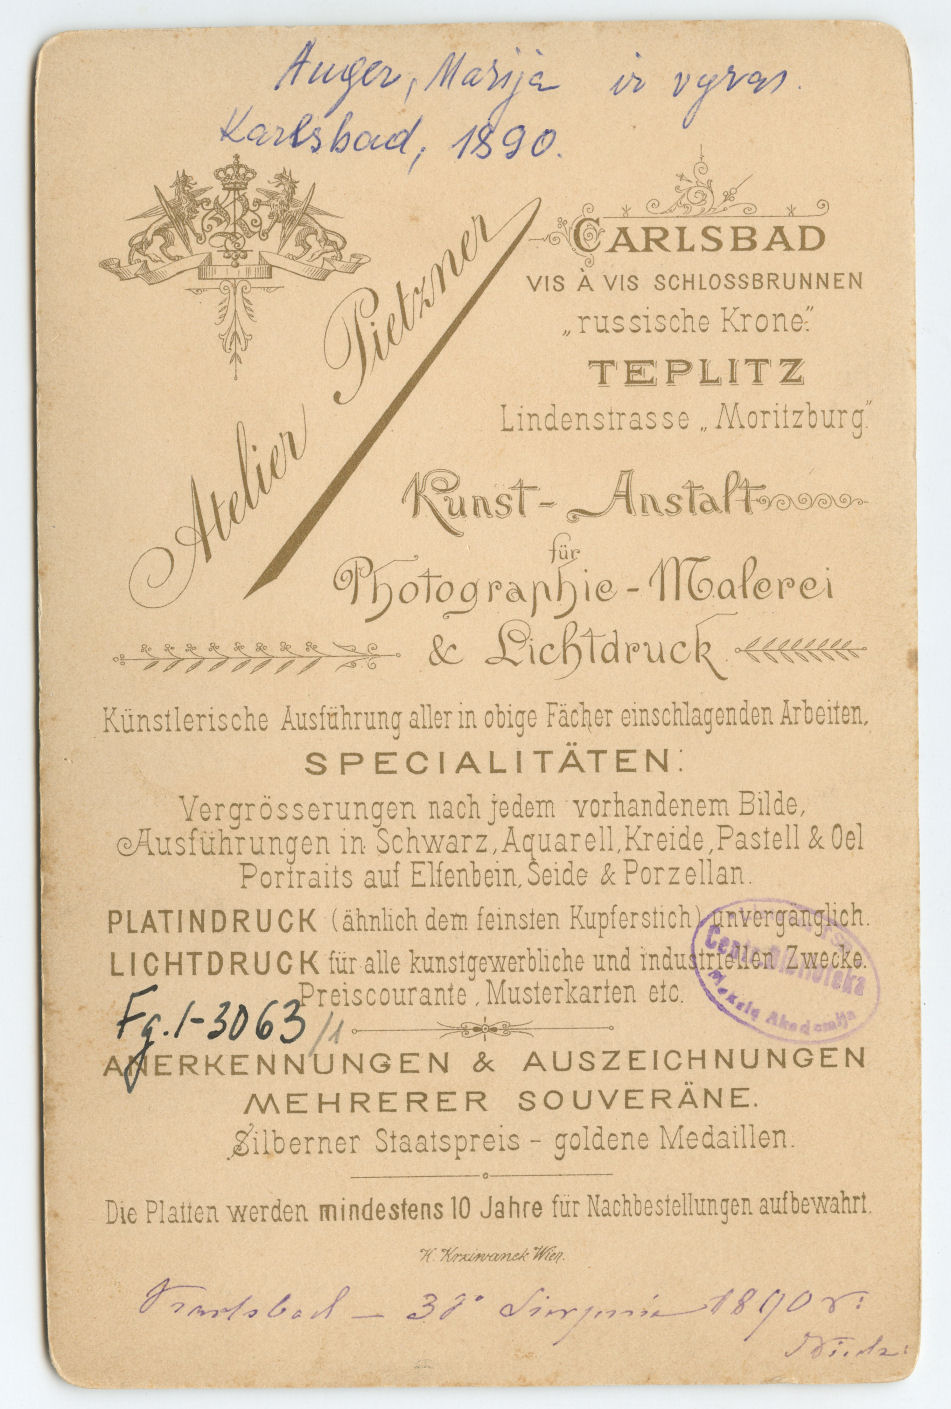 Auger, Marija ir vyras.
Karlsbad, 1890.
Atelier Pietzner
CARLSBAD
VIS À VIS SCHLOSSBRUNNEN
„russische Krone“.
TEPLITZ
Lindenstrasse „Moritzburg“.
Kunst-Anstalt
für
Photographie-Malerei
& Lichtdruck
Künstlerische Ausführung aller in obige Fächer einschlagenden Arbeiten.
SPECIALITÄTEN:
Vergrösserungen nach jedem vorhandenem Bilde,
Ausführungen in Schwarz, Aquarell, Kreide, Pastell & Oel
Portraits auf Elfenbein, Seide & Porzellan.
PLATINDRUCK (ähnlich dem feinsten Kupferstich) unvergänglich.
LICHTDRUCK für alle kunstgewerbliche und industriellen Zwecke.
Preiscourante, Musterkarten etc.
Centr. Biblioteka
Mokslų Akademija
Fg. 1-3063/1
ANERKENNUNGEN & AUSZEICHNUNGEN
MEHRERER SOUVERÄNE.
Silberner Staatspreis - goldene Medaillen.
Die Platten werden mindestens 10 Jahre für Nachbestellungen aufbewahrt.
K. Krziwanek Wien.
Karlsbad — Sierpnia 1890 r: